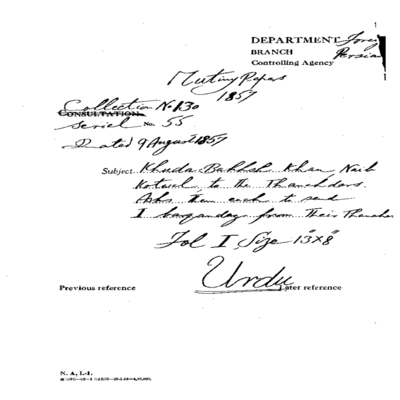 1
DEPARTMENT Foreign
BRANCH Persian
Controlling Agency
Mutiny Papers
1857
Collection No 130
CONSULTATION
Serial No. 55
Dated 9 August 1857
Subject Khuda Bakhsh Khan Naib
Kotwal to the Thanehdars.
Asks them each to send
I barqandaz from Their Thanehs
Fol I, Size 13"x8"
Urdu
Previous reference Later reference
N. A, L-I.